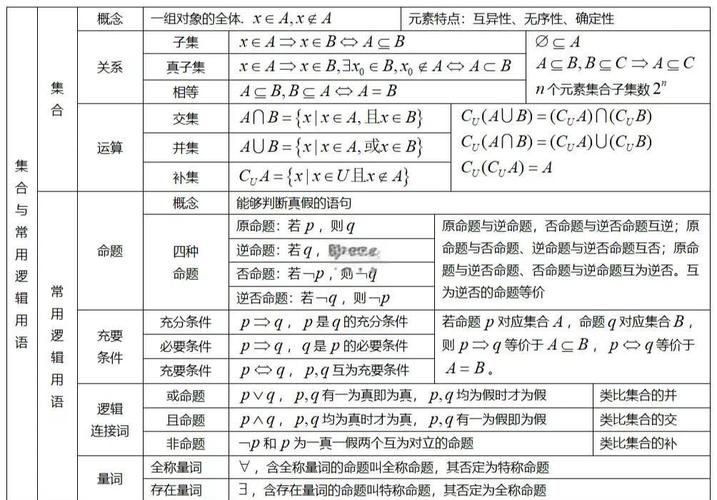 集合与常用逻辑用语
集合
概念
一组对象的全体. x∈A,x∉A
元素特点：互异性、无序性、确定性
关系
子集
x∈A⇒x∈B⇔A⊆B
真子集
x∈A⇒x∈B,∃x₀∈B,x₀∉A⇔A⊂B
相等
A⊆B,B⊆A⇔A=B
∅⊆A
A⊆B,B⊆C⇒A⊆C
n个元素集合子集数2ⁿ
运算
交集
A∩B={x|x∈A,且x∈B}
并集
A∪B={x|x∈A,或x∈B}
补集
C_U A={x|x∈U且x∉A}
C_U(A∪B)=(C_U A)∩(C_U B)
C_U(A∩B)=(C_U A)∪(C_U B)
C_U(C_U A)=A
常用逻辑用语
命题
概念
能够判断真假的语句
四种
命题
原命题：若p，则q
逆命题：若q，
否命题：若¬p，则¬q
逆否命题：若¬q，则¬p
原命题与逆命题，否命题与逆否命题互逆；原
命题与否命题、逆命题与逆否命题互否；原命
题与逆否命题、否命题与逆命题互为逆否。互
为逆否的命题等价
充要
条件
充分条件
p⇒q，p是q的充分条件
必要条件
p⇒q，q是p的必要条件
充要条件
p⇔q，p,q互为充要条件
若命题p对应集合A，命题q对应集合B，
则p⇒q等价于A⊆B，p⇔q等价于
A=B。
逻辑
连接词
或命题
p∨q，p,q有一为真即为真，p,q均为假时才为假
类比集合的并
且命题
p∧q，p,q均为真时才为真，p,q有一为假即为假
类比集合的交
非命题
¬p和p为一真一假两个互为对立的命题
类比集合的补
量词
全称量词
∀，含全称量词的命题叫全称命题，其否定为特称命题
存在量词
∃，含存在量词的命题叫特称命题，其否定为全称命题